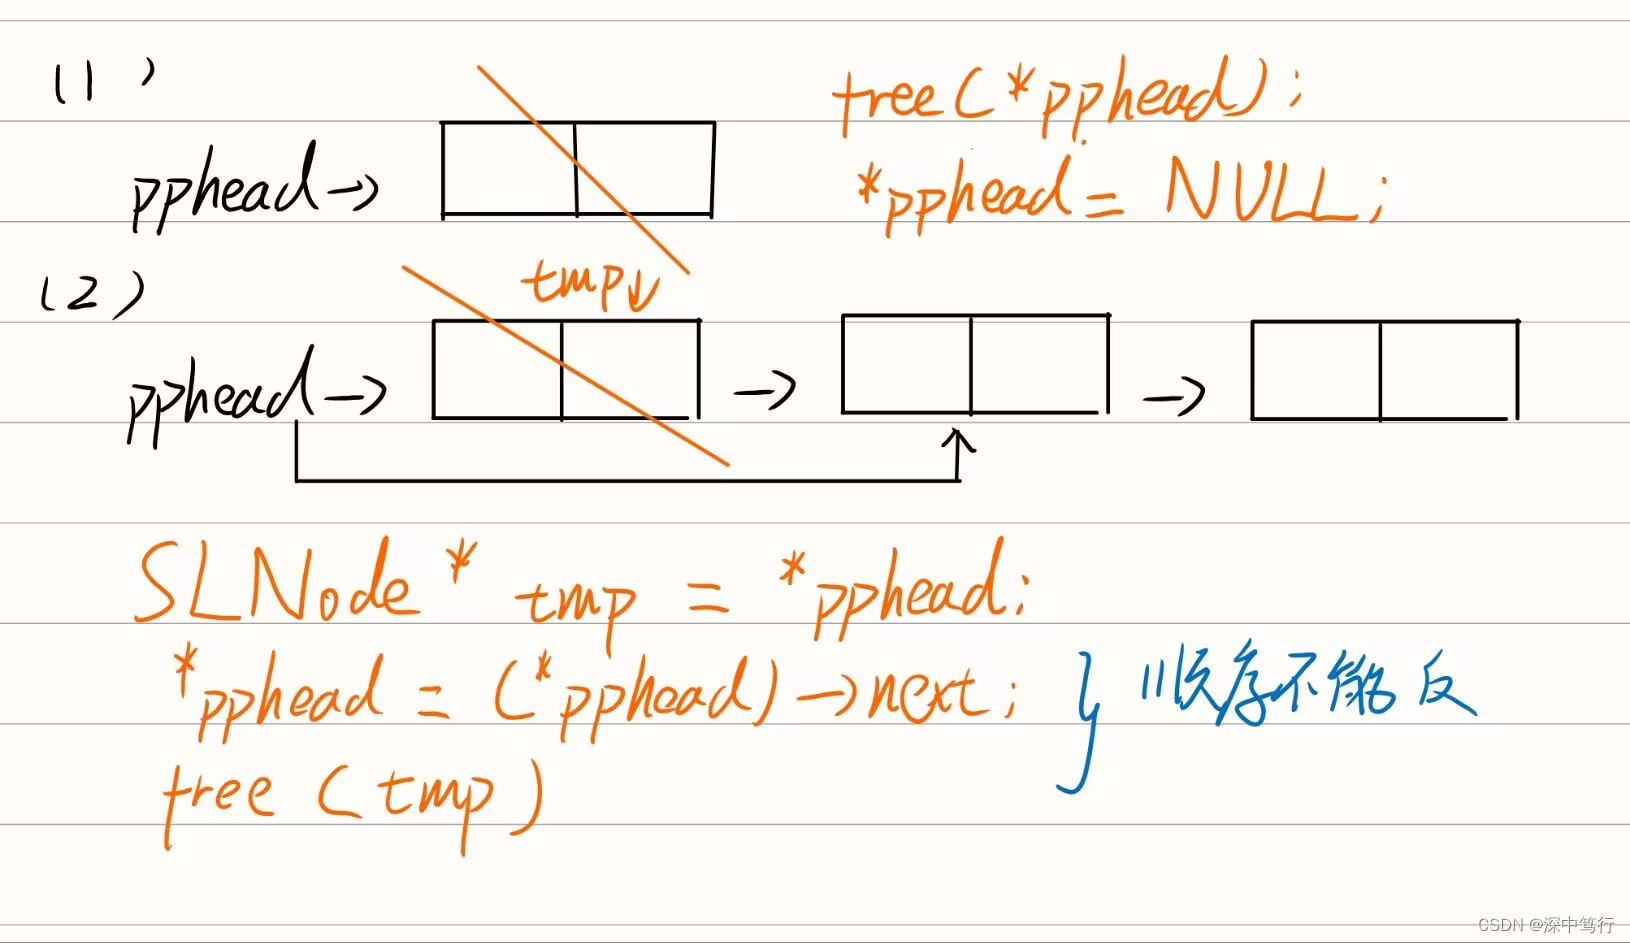 (1)
pphead→
free(*pphead);
*pphead = NULL;
(2)
tmp↓
pphead→ → →
SLNode * tmp = *pphead;
*pphead = (*pphead)→next;
free (tmp)
} 顺序不能反
CSDN @深中笃行